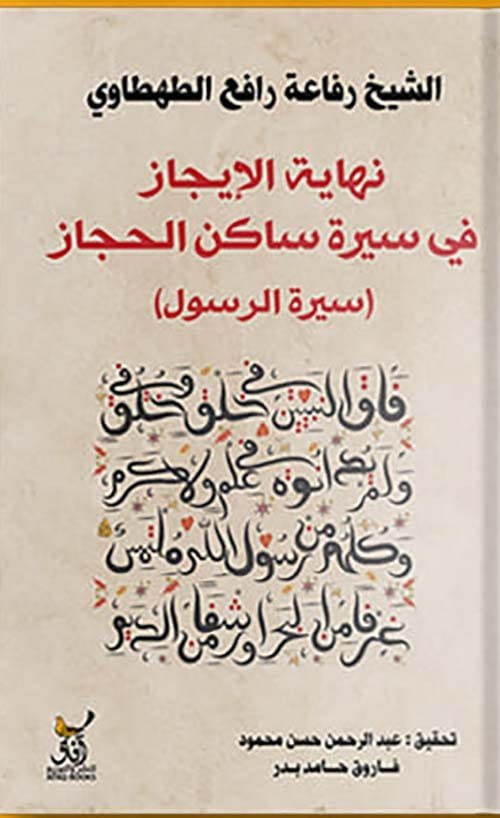 الشيخ رفاعة رافع الطهطاوي
نهاية الإيجاز
في سيرة ساكن الحجاز
(سيرة الرسول)
فاق النبيين في خلق وفي خلق
ولم يدانوه في علم ولا كرم
وكلهم من رسول الله ملتمس
غرفا من البحر أو رشفا من الديم
تحقيق : عبد الرحمن حسن محمود
فاروق حامد بدر
آفاق
للنشر والتوزيع
AFAQ BOOKS